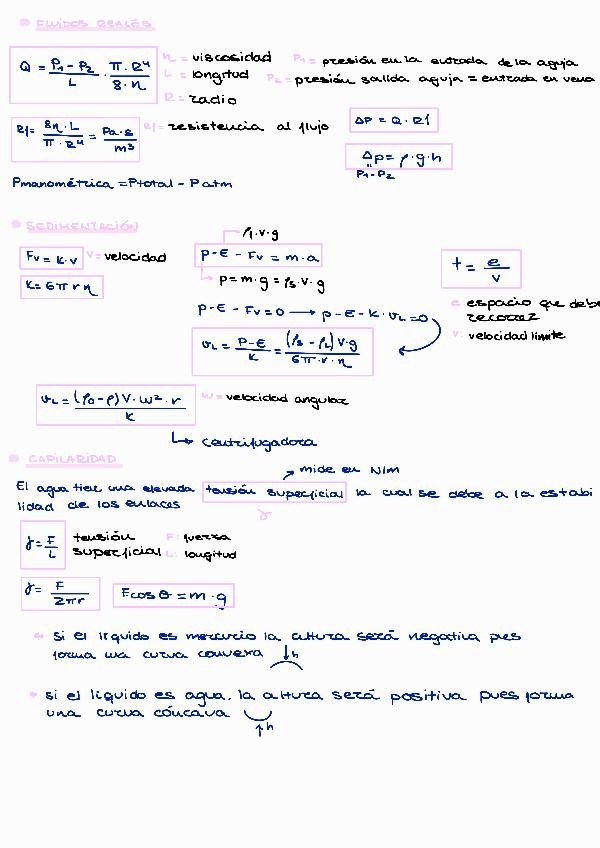 FLUIDOS REALES
Q = (P1 - P2)/L · (π·R⁴)/(8·η)
η = viscosidad P1 = presión en la entrada de la aguja
L = longitud P2 = presión salida aguja = entrada en vena
R = radio
Rf = (8η·L)/(π·R⁴) = (Pa·s)/m³ Rf = resistencia al flujo ΔP = Q·Rf
Δp = ρ·g·h
P1-P2
Pmanométrica = Ptotal - Patm
SEDIMENTACIÓN
ρl·v·g
Fv = k·v V = velocidad P-E-Fv = m·a t = e/v
K = 6πrη p = m·g = ρs·v·g
e: espacio que debe recorrer
P-E-Fv=0 → p-E-K·vL=0
v: velocidad límite
vL = (P-E)/K = ((ρs-ρL)V·g)/(6π·r·η)
vL = ((ρo-ρ)V·ω²·r)/K ω = velocidad angular
centrifugadora
CAPILARIDAD
mide en N/m
El agua tiene una elevada tensión superficial la cual se debe a la estabi
lidad de los enlaces γ
γ = F/L tensión superficial F: fuerza
L: longitud
γ = F/(2πr) Fcosθ = m·g
si el líquido es mercurio la altura será negativa pues
forma una curva convexa h
si el líquido es agua, la altura será positiva pues forma
una curva cóncava h